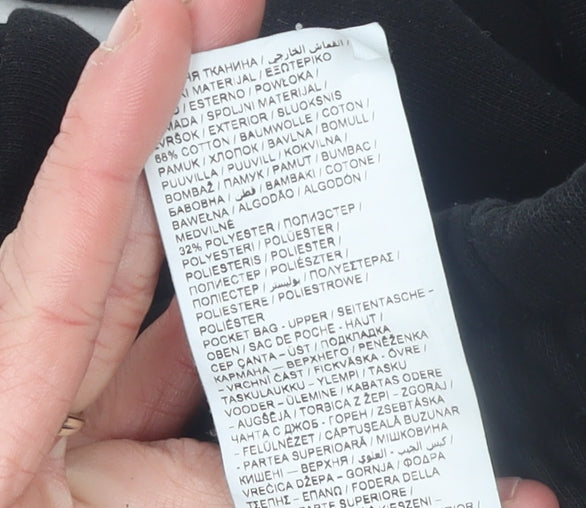 ТКАНИНА / القماش الخارجي /
MATERIJAL / ΕΞΩΤΕΡΙΚΟ
/ ESTERNO / POWŁOKA /
SPOLJNI MATERIJAL /
/ EXTERIOR / SLUOKSNIS
68% COTTON / BAUMWOLLE / COTON /
PAMUK / ХЛОПОК / BAVLNA / BOMULL /
PUUVILLA / PUUVILL / KOKVILNA /
BOMBAŽ / ПАМУК / PAMUT / BUMBAC /
БАВОВНА / قطن / ΒΑΜΒΑΚΙ / COTONE /
BAWEŁNA / ALGODÃO / ALGODÓN /
MEDVILNĖ
32% POLYESTER / ПОЛИЭСТЕР /
POLYESTERI / POLÜESTER /
POLIESTERIS / POLIESTER /
ПОЛИЕСТЕР / POLIÉSZTER /
ПОЛІЕСТЕР / بوليستر / ΠΟΛΥΕΣΤΕΡΑΣ /
POLIESTERE / POLIESTROWE /
POLIÉSTER
POCKET BAG - UPPER / SEITENTASCHE -
OBEN / SAC DE POCHE - HAUT /
CEP ÇANTA - ÜST / ПОДКЛАДКА
КАРМАНА — ВЕРХНЕГО / PENĚŽENKA
- VRCHNÍ ČÁST / FICKVÄSKA - ÖVRE /
TASKULAUKKU - YLEMPI / TASKU
VOODER - ÜLEMINE / KABATAS ODERE
- AUGŠĒJA / TORBICA Z ŽEPI - ZGORAJ /
ЧАНТА С ДЖОБ - ГОРЕН / ZSEBTÁSKA
- FELÜLNÉZET / CĂPTUȘEALĂ BUZUNAR
- PARTEA SUPERIOARĂ / МІШКОВИНА
КИШЕНІ — ВЕРХНЯ / كيس الجيب - العلوي /
VREĆICA DŽEPA - GORNJA / ΦΟΔΡΑ
ΤΣΕΠΗΣ - ΕΠΑΝΩ / FODERA DELLA
PARTE SUPERIORE /
KIESZENI -